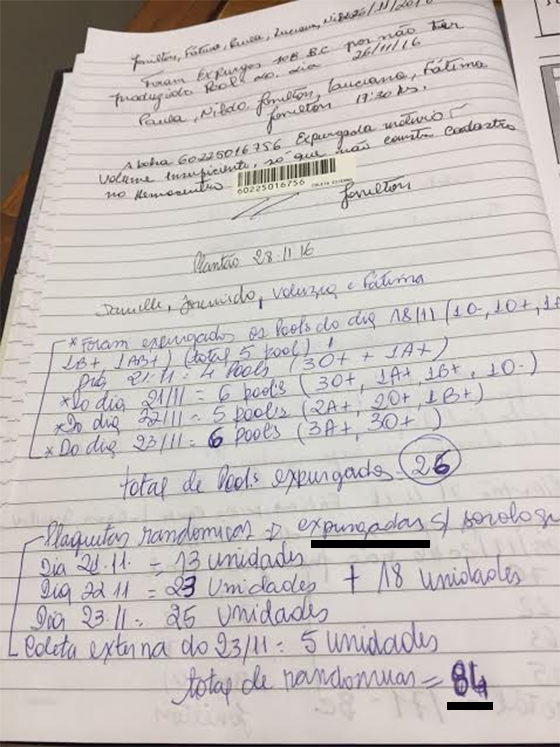 Jenilton, Fátima, Paula, Luciana, Nildo 26/11/2016
Foram Expurgos 108 BC por não ter
produzido Pool do dia 26/11/16
Paula, Nildo, Jenilton, Luciana, Fátima
Jenilton 17:30 hs.
A bolsa 60225016756 Expurgada motivo
Volume Insuficiente, só que não consta cadastro
no Hemocentro
60225016756
COLETA EXTERNA
Jenilton
Plantão 28.11.16
Danielle, Valuzia e Fátima
* Foram expurgados os Pools do dia 18/11 (10-, 10+,
1B+ 1AB+) (total 5 pool)
Dia 21.11 = 4 Pools (3O+ + 1A+)
* Do dia 21/11 = 6 pools (3O+, 1A+, 1B+, 1O-)
* Do dia 22/11 = 5 pools (2A+, 2O+, 1B+)
* Do dia 23/11 = 6 pools (3A+, 3O+)
total de Pools expurgados 26
Plaquetas randomicas → expurgadas s/ sorologi
Dia 21.11. = 13 unidades
Dia 22.11 = 23 Unidades + 18 unidades
Dia 23.11 = 25 Unidades
Coleta externa do 23/11 = 5 unidades
total de randomicas = 84